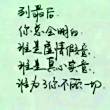 到最后
你总会明白
谁是虚情假意
谁是真心实意
谁为了你不顾一切